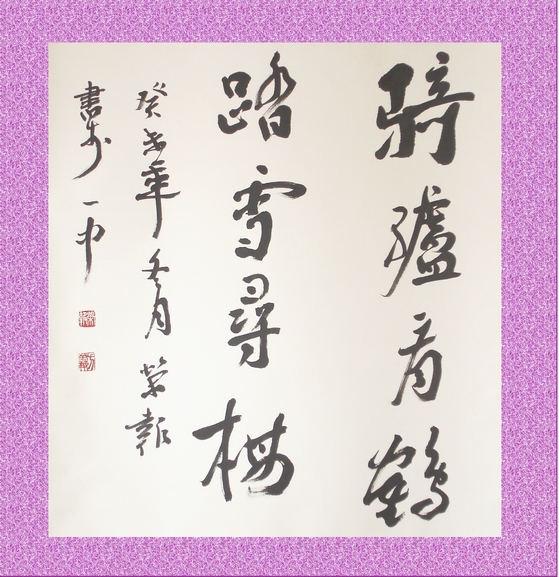 騎驢看鶴
踏雪尋梅
癸未年冬月榮報
書於一中